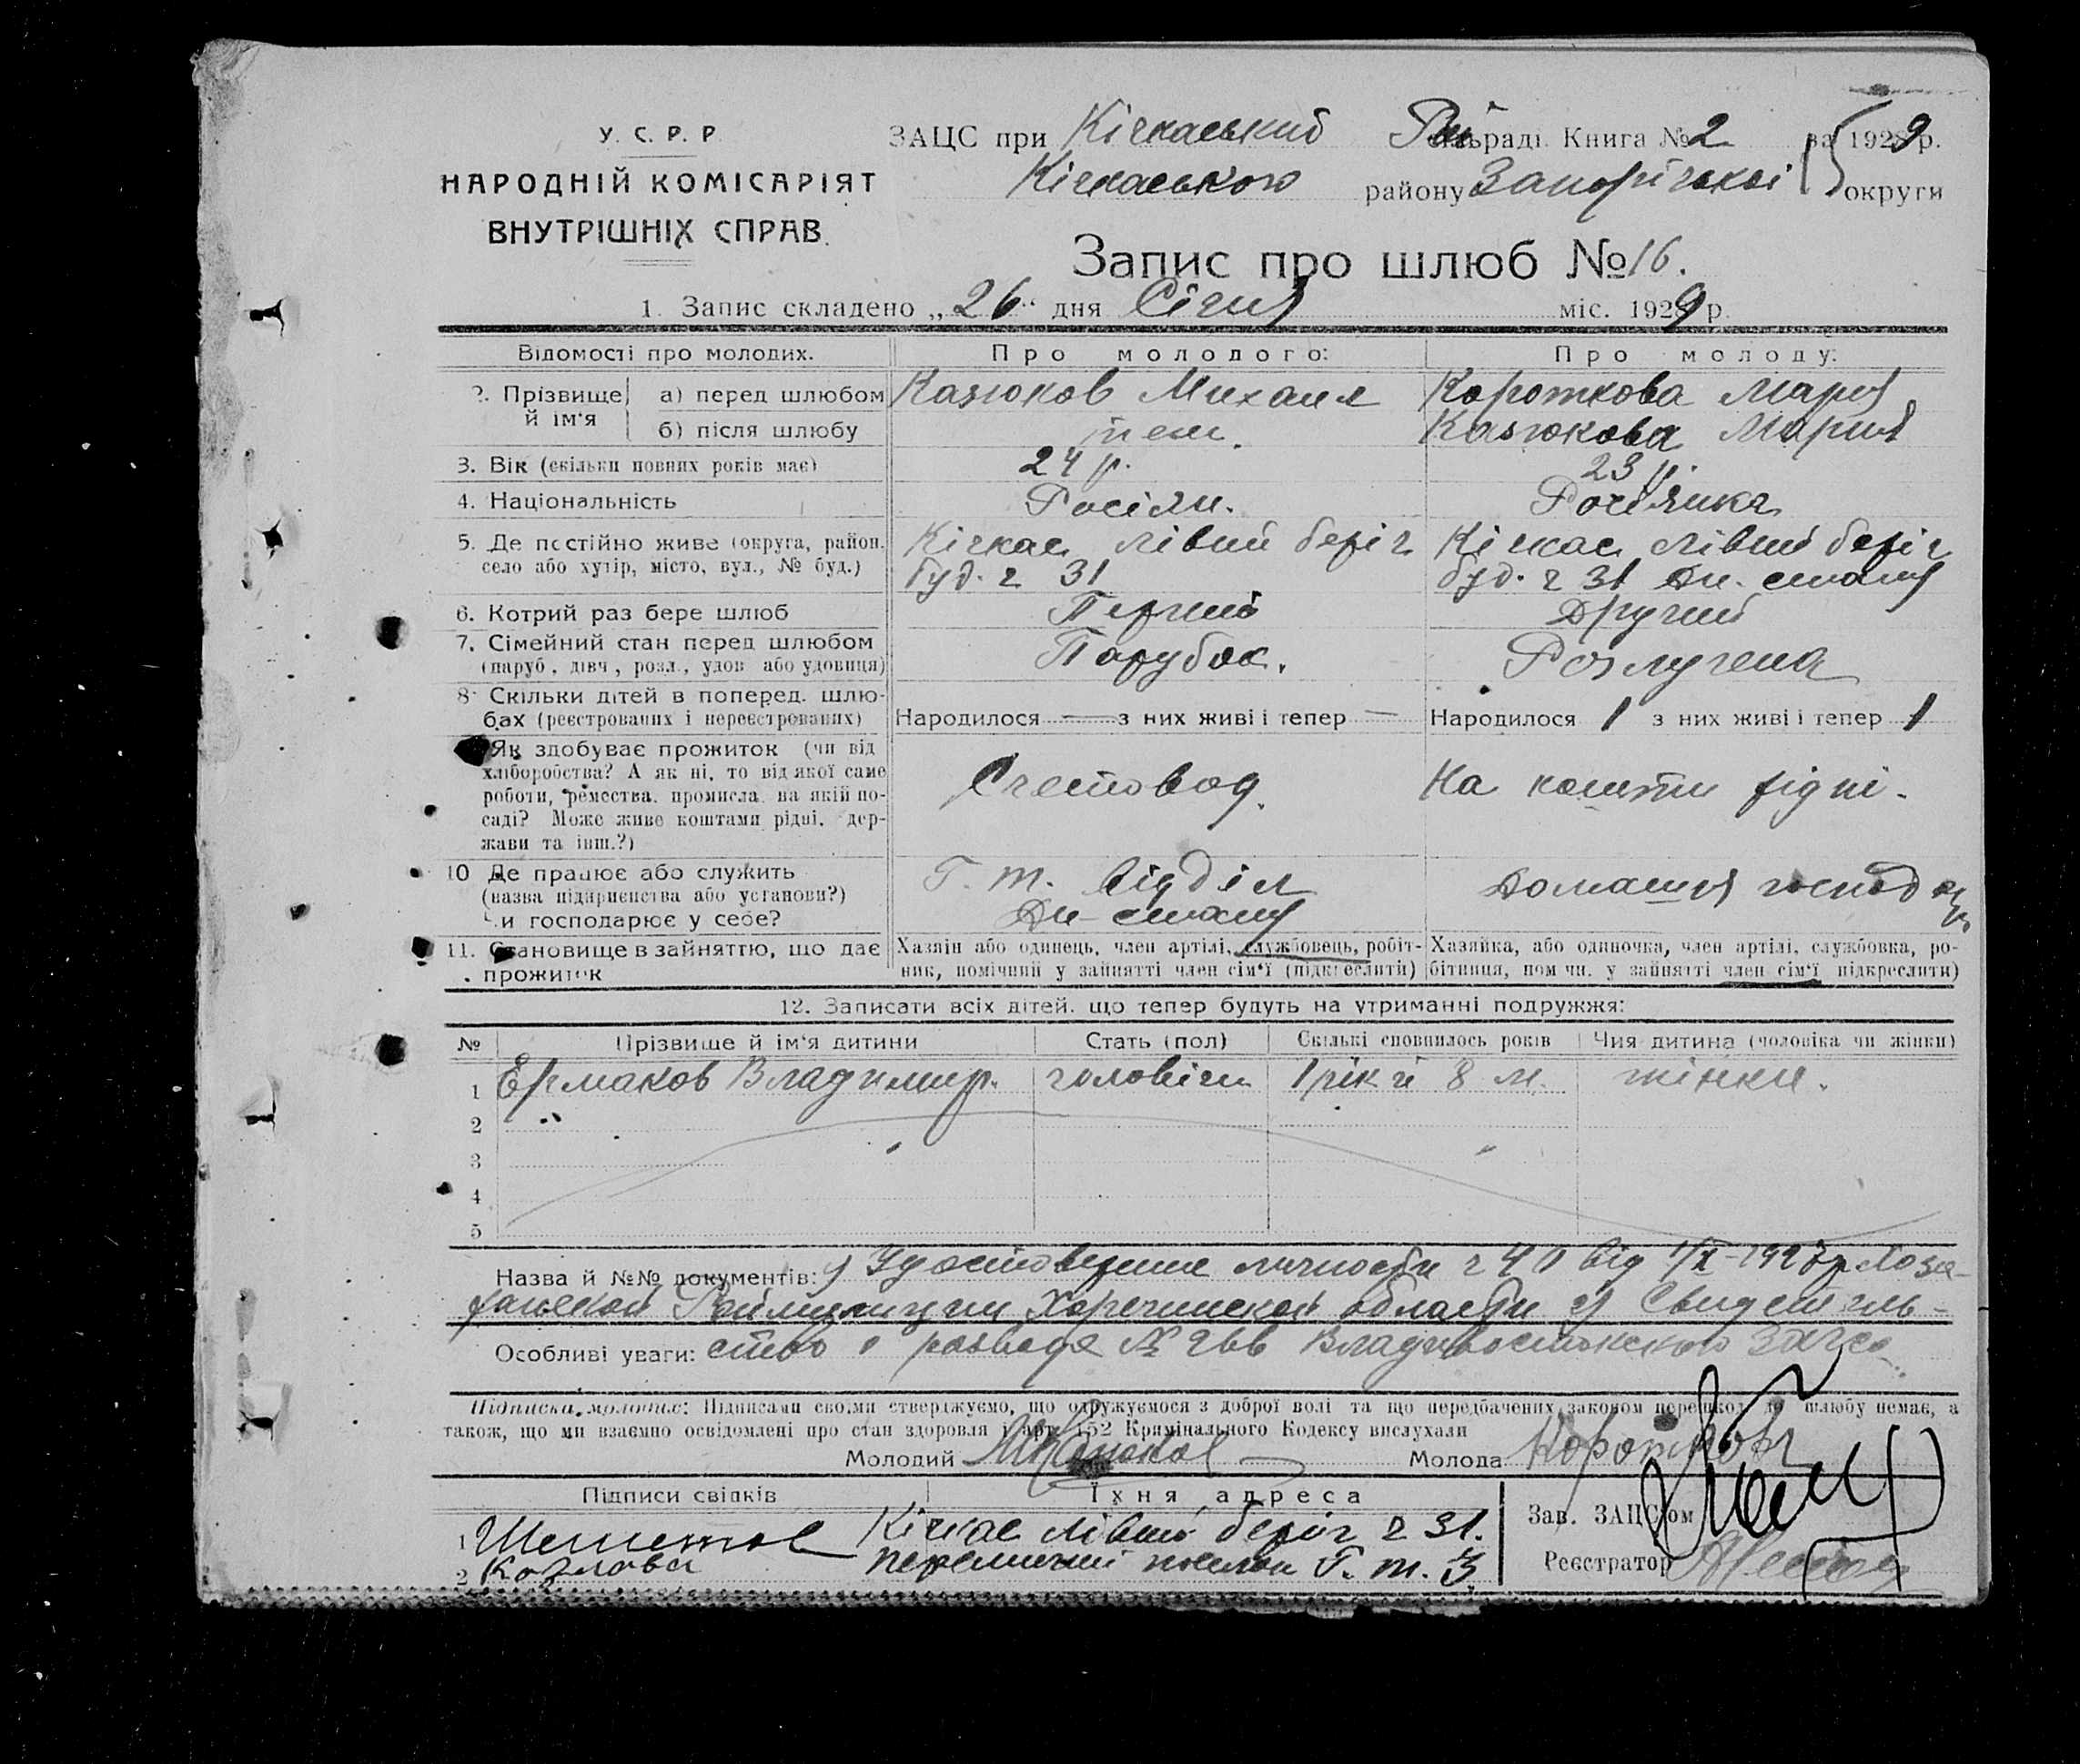 У. С. Р. Р.
НАРОДНІЙ КОМІСАРІЯТ
ВНУТРІШНІХ СПРАВ.
ЗАЦС при Кічкаський Рай раді. Книга № 2 за 1929 р.
Кічкаського району Запорізької округи 15
Запис про шлюб № 16.
1. Запис складено „26“ дня Січня міс. 1929 р.
Відомості про молодих. Про молодого: Про молоду:
2. Прізвище й ім'я а) перед шлюбом Казюков Михаил Короткова Мария
б) після шлюбу теж. Казюкова Мария
3. Вік (скільки повних років має) 24 р. 23 р.
4. Національність Росіян. Росіянка
5. Де постійно живе (округа, район, Кічкас лівий беріг Кічкас лівий беріг
село або хутір, місто, вул., № буд.) буд. ч 31 буд. ч 31 Дн. стану
6. Котрий раз бере шлюб Перший Другий
7. Сімейний стан перед шлюбом Парубок. Розлучена
(паруб., дівч., розл., удов. або удовиця)
8. Скільки дітей в поперед. шлю-
бах (реєстрованих і нереєстрованих) Народилося — з них живі і тепер — Народилося 1 з них живі і тепер 1
Як здобуває прожиток (чи від
хліборобства? А як ні, то від якої саме
роботи, ремества, промисла, на якій по- Счетовод. На кошти рідні.
саді? Може живе коштами рідні, дер-
жави та інш.?)
10 Де працює або служить Г. т. відділ Домашня господар.
(назва підприємства або установи?) Дн-стану
Чи господарює у себе?
11. Становище в зайняттю, що дає Хазяін або одинець, член артілі, службовець, робіт- Хазяйка, або одиночка, член артілі, службовка, ро-
прожиток ник, помічний у зайнятті член сім'ї (підкреслити) бітниця, пом чн. у зайнятті член сім'ї підкреслити)
12. Записати всіх дітей, що тепер будуть на утриманні подружжя:
№ Прізвище й ім'я дитини Стать (пол) Скількі сповнилось років Чия дитина (чоловіка чи жінки)
1 Ермаков Владимир. чоловіч. 1 рік й 8 м. жінки.
2
3
4
5
Назва й №№ документів: Удостоверение личности ч 40 від
области Свидетель-
Особливі уваги: ство о разводе № 266 Владивостокского Загса
Підписка молодих: Підписами своїми стверджуємо, що одружуємося з доброї волі та що передбачених законом перешкод до шлюбу немає, а
також, що ми взаємно освідомлені про стан здоровля і арт. 152 Кримінального Кодексу вислухали
Молодий МКазюков Молода Короткова
Підписи свідків Їхня адреса
1 Шешетов Кічкас лівий беріг ч 31.
2 Козлова Г. т. З.
Зав. ЗАЦС'ом
Реєстратор